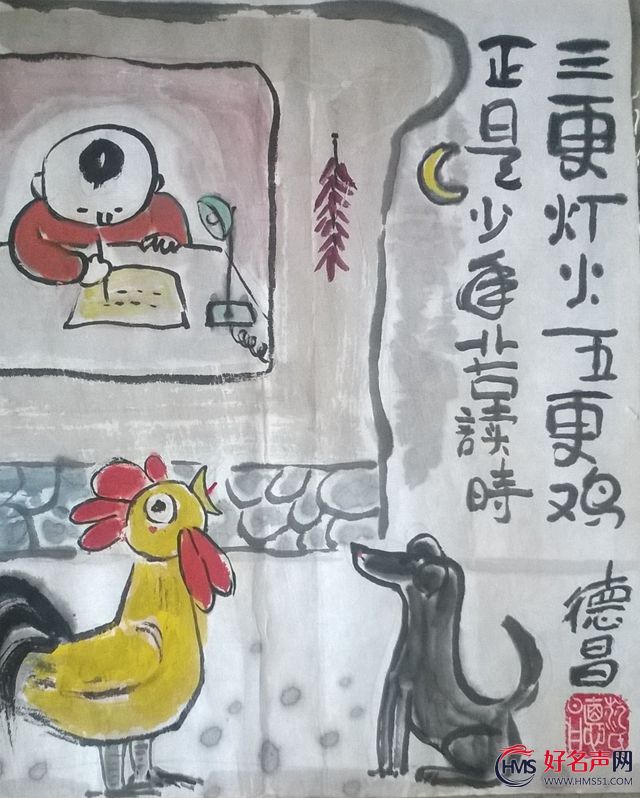 三更灯火五更鸡
正是少年苦讀時
德昌
HMS
好名声网
WWW.HMS51.COM